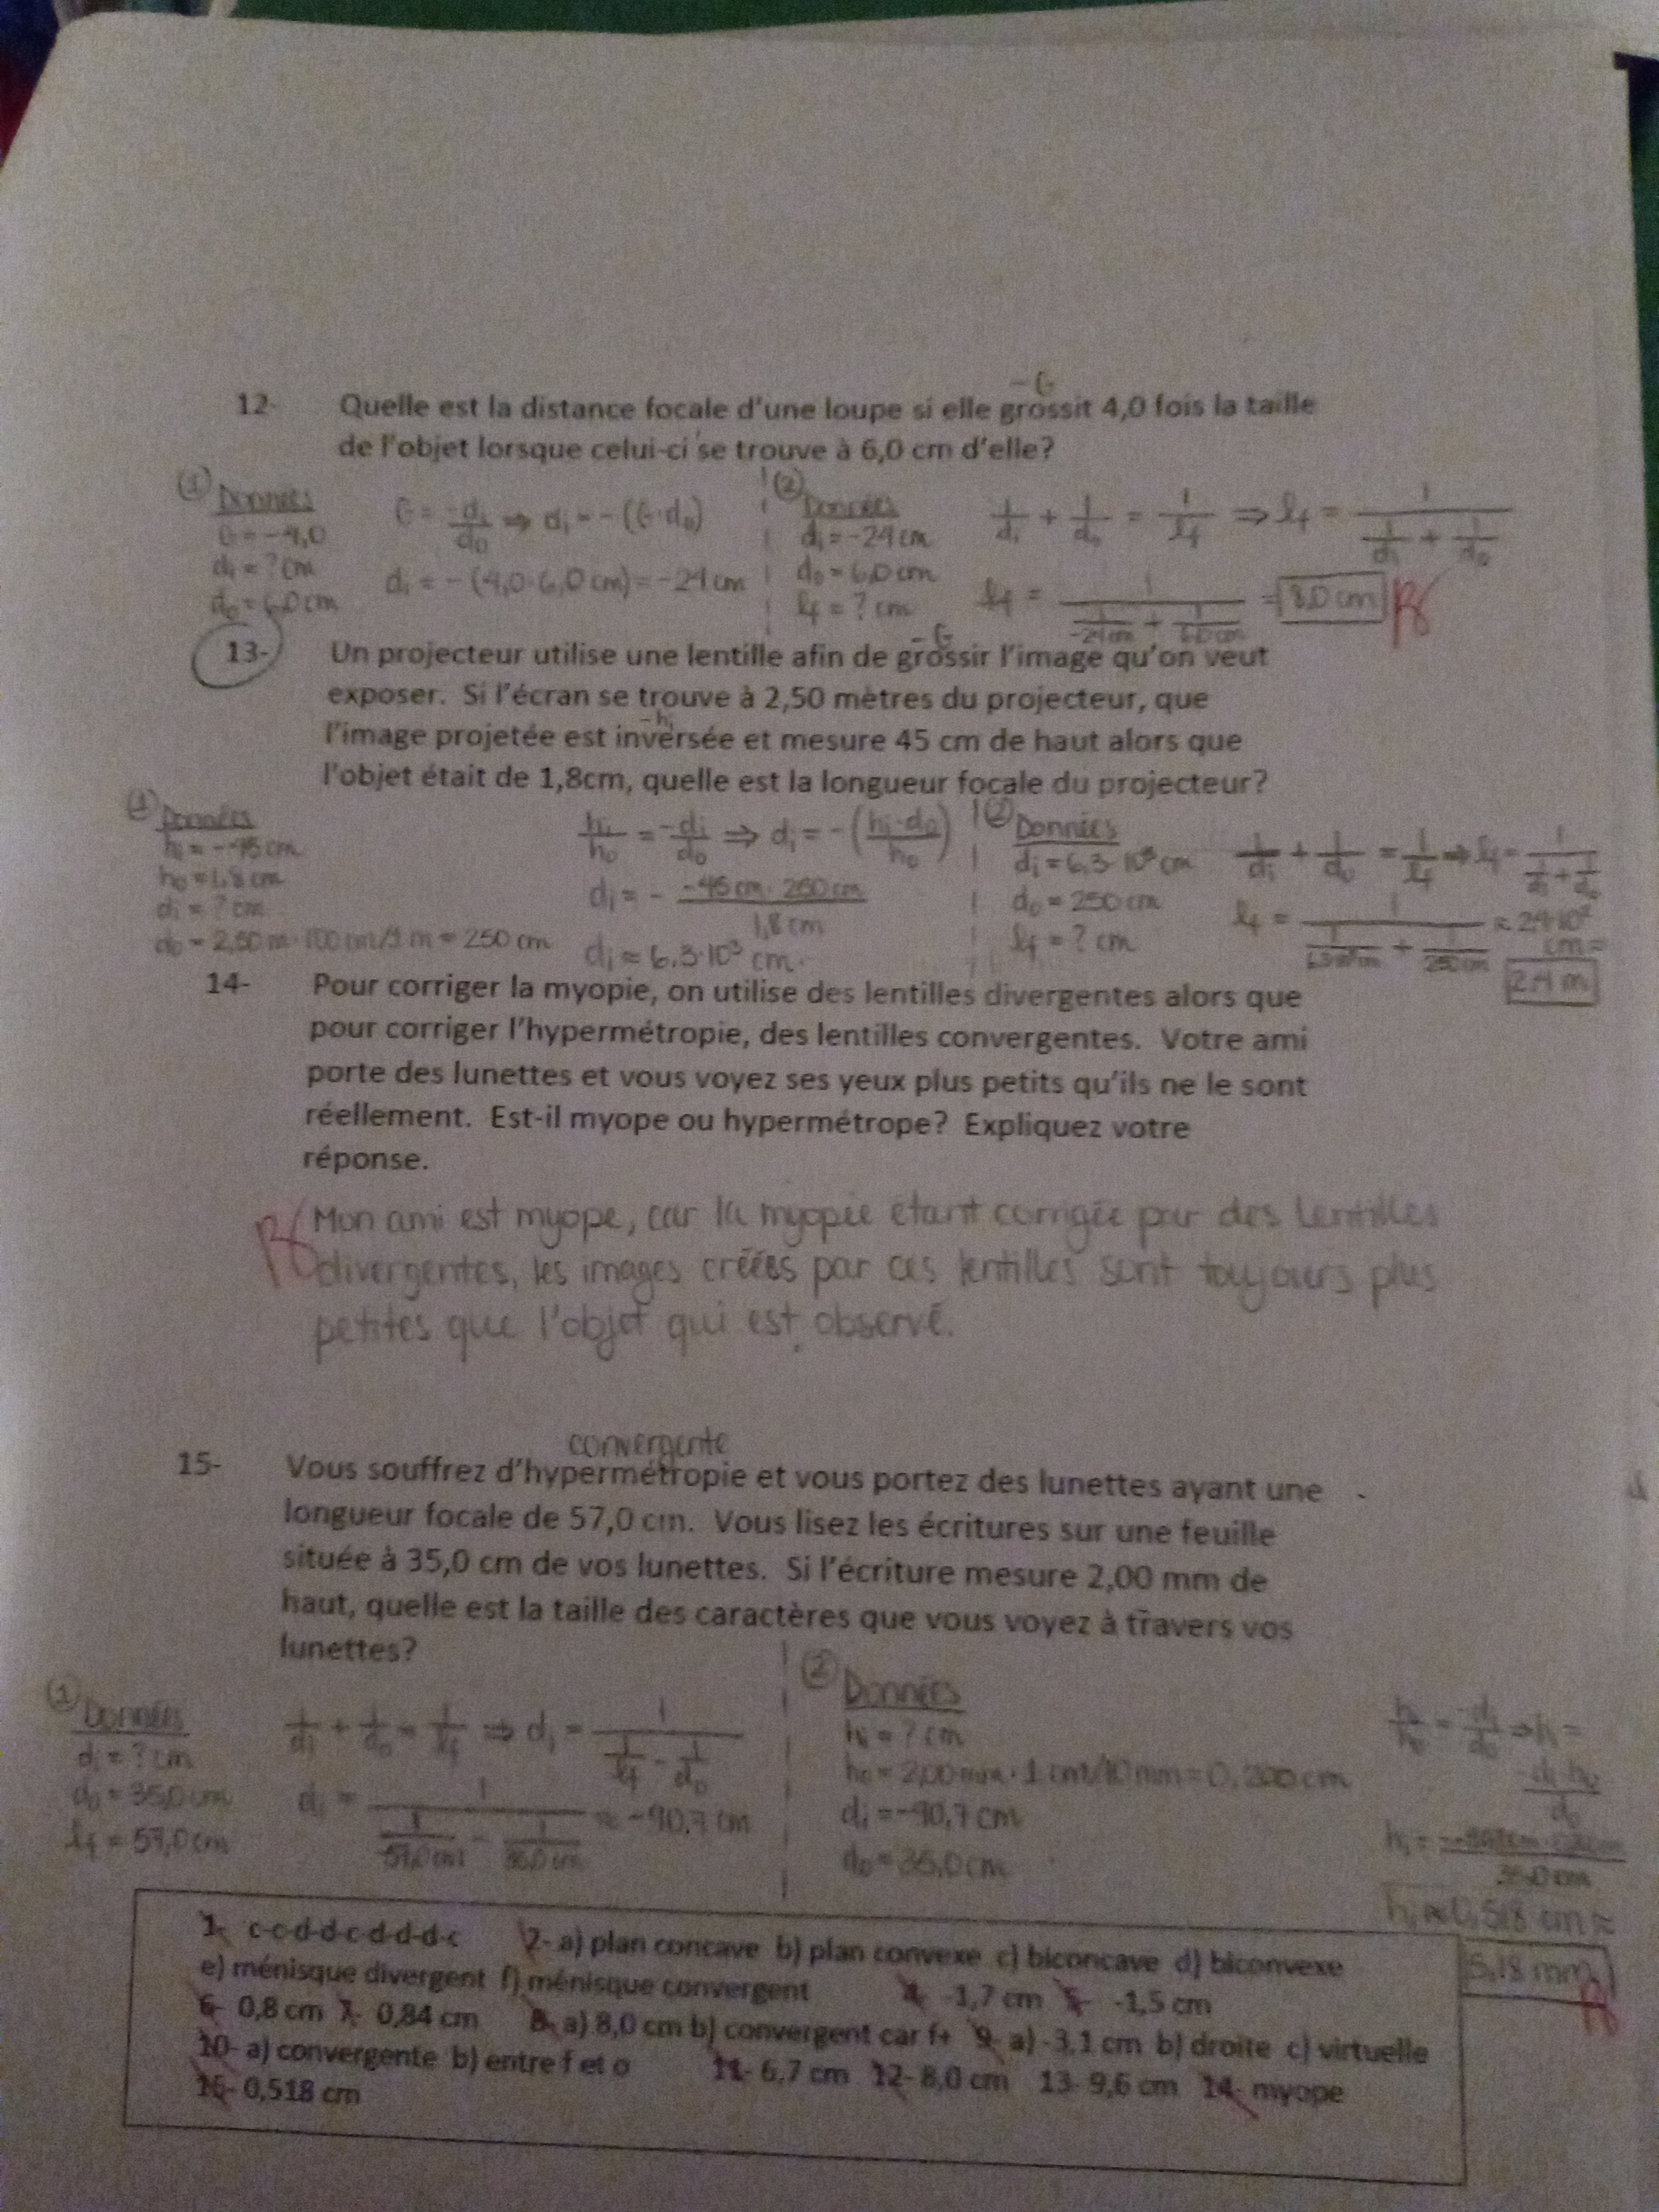 12- Quelle est la distance focale d'une loupe si elle grossit 4,0 fois la taille
de l'objet lorsque celui-ci se trouve à 6,0 cm d'elle?
-G
① Données
G = -4,0
di = ? cm
do = 6,0 cm
G = -di/do ⇒ di = -(G·do)
di = -(4,0·6,0 cm) = -24 cm
② Données
di = -24 cm
do = 6,0 cm
lf = ? cm
1/di + 1/do = 1/lf ⇒ lf = 1/(1/di + 1/do)
lf = 1/(1/-24cm + 1/6,0cm) = 8,0 cm
13- Un projecteur utilise une lentille afin de grossir l'image qu'on veut
exposer. Si l'écran se trouve à 2,50 mètres du projecteur, que
l'image projetée est inversée et mesure 45 cm de haut alors que
l'objet était de 1,8cm, quelle est la longueur focale du projecteur?
-G
-hi
① Données
hi = -45 cm
ho = 1,8 cm
di = ? cm
do = 2,50 m · 100 cm/1 m = 250 cm
hi/ho = -di/do ⇒ di = -(hi·do/ho)
di = - -45 cm · 250 cm/1,8 cm
di ≈ 6,3·10³ cm
② Données
di = 6,3·10³ cm
do = 250 cm
lf = ? cm
1/di + 1/do = 1/lf ⇒ lf = 1/(1/di + 1/do)
lf = 1/(1/6,3·10³cm + 1/250cm) ≈ 2,4·10² cm =
2,4 m
14- Pour corriger la myopie, on utilise des lentilles divergentes alors que
pour corriger l'hypermétropie, des lentilles convergentes. Votre ami
porte des lunettes et vous voyez ses yeux plus petits qu'ils ne le sont
réellement. Est-il myope ou hypermétrope? Expliquez votre
réponse.
Mon ami est myope, car la myopie étant corrigée par des lentilles
divergentes, les images créées par ces lentilles sont toujours plus
petites que l'objet qui est observé.
convergente
15- Vous souffrez d'hypermétropie et vous portez des lunettes ayant une
longueur focale de 57,0 cm. Vous lisez les écritures sur une feuille
située à 35,0 cm de vos lunettes. Si l'écriture mesure 2,00 mm de
haut, quelle est la taille des caractères que vous voyez à travers vos
lunettes?
① Données
di = ? cm
do = 35,0 cm
lf = 57,0 cm
1/di + 1/do = 1/lf ⇒ di = 1/(1/lf - 1/do)
di = 1/(1/57,0cm - 1/35,0cm) ≈ -90,7 cm
② Données
hi = ? cm
ho = 2,00 mm · 1 cm/10 mm = 0,200 cm
di = -90,7 cm
do = 35,0 cm
hi/ho = -di/do ⇒ hi =
-di·ho/do
hi ≈ 0,518 cm ≈
5,18 mm
1- c-c-d-d-c-d-d-d-c 2- a) plan concave b) plan convexe c) biconcave d) biconvexe
e) ménisque divergent f) ménisque convergent 4- -1,7 cm 5- -1,5 cm
6- 0,8 cm 7- 0,84 cm 8- a) 8,0 cm b) convergent car f+ 9- a) -3,1 cm b) droite c) virtuelle
10- a) convergente b) entre f et o 11- 6,7 cm 12- 8,0 cm 13- 9,6 cm 14- myope
15- 0,518 cm